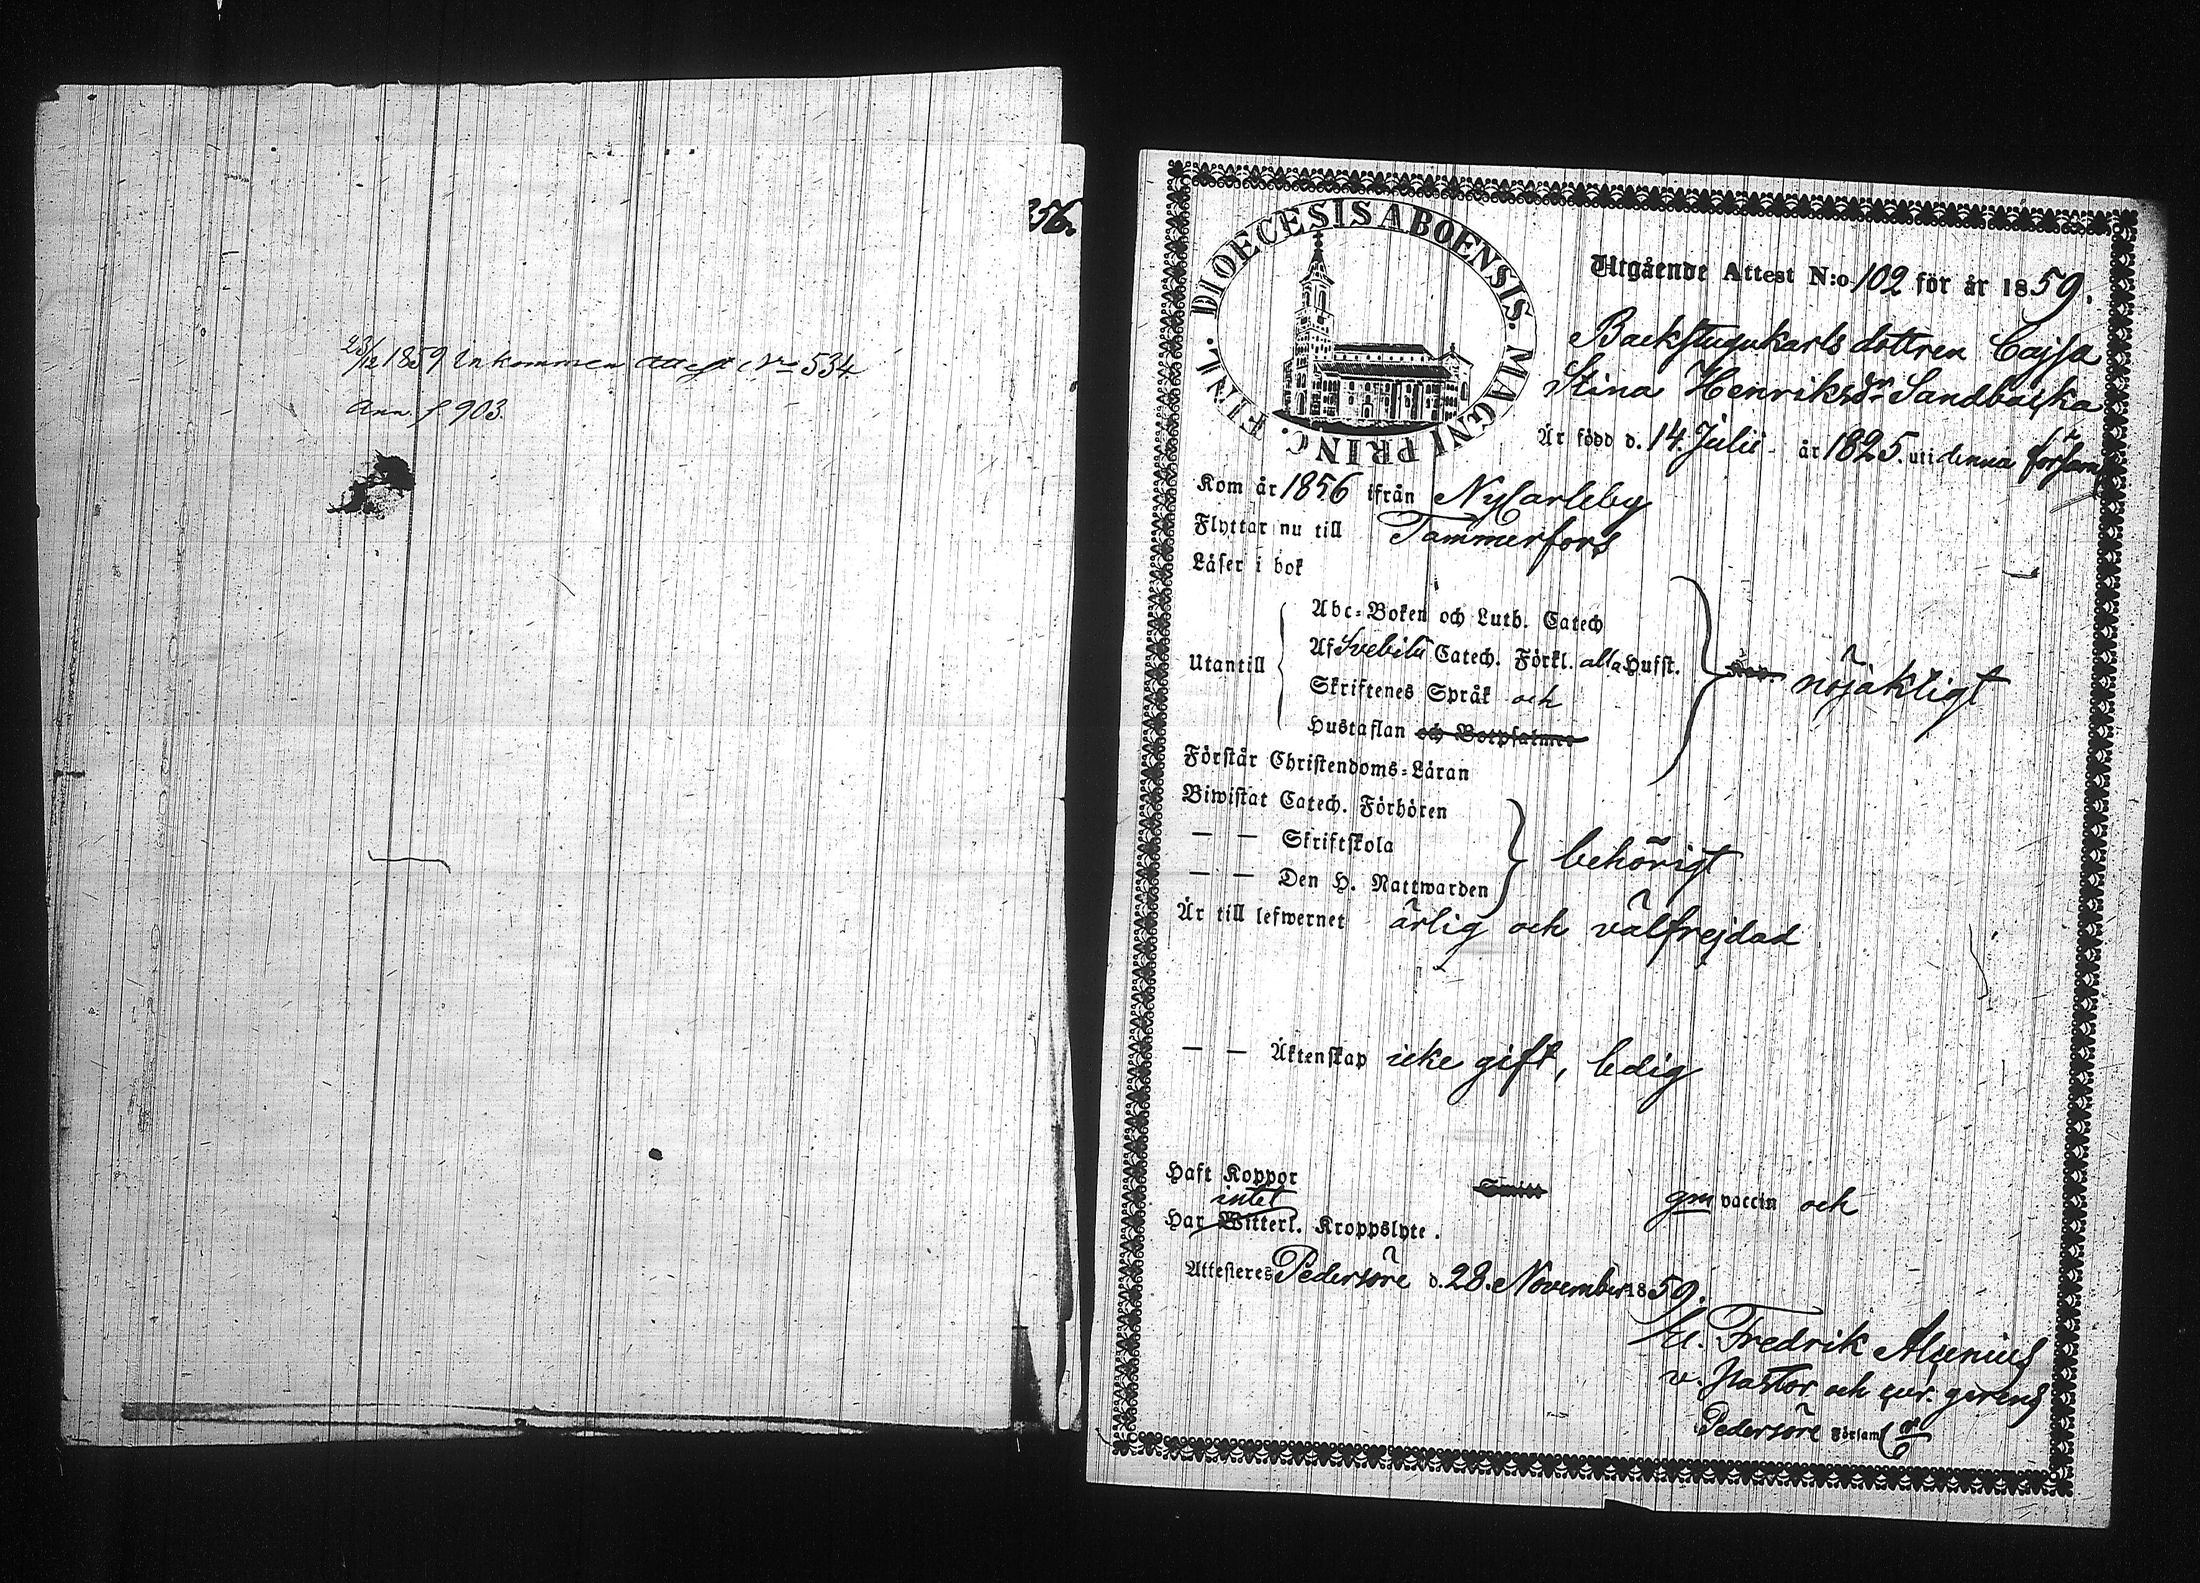 256.
23/12 1859 Inkommen Attest No 534.
Ann. f 903.
DIOECESIS ABOENSIS. MAGNI PRINC. FINL.
Utgående Attest N:o 102 för år 1859.
Backstugukarls dottren Cajsa
Stina Henriksdr Sandbacka
Är född d. 14. Julii - år 1825. uti denna församl
Kom år 1856 ifrån NyCarleby
Flyttar nu till Tammerfors
Läser i bok
Abc-Boken och Luth. Catech
Utantill Af Svebilii Catech. Förkl. alla Hufst. nöjaktigt
Skriftenes Språk och
Hustaflan och Botpsalmer
Förstår Christendoms-Läran
Biwistat Catech. Förhören
— — Skriftskola behörigt
— — Den H. Nattwarden
Är till lefwernet ärlig och välfrejdad
— — Äktenskap icke gift, ledig
Haft Koppor Smitt gm vaccin och
intet
Har Witterl. Kroppslyte.
Attesteres Pedersöre d. 28. November 1859.
Fredrik
v. Pastor och
Pedersöre Församl